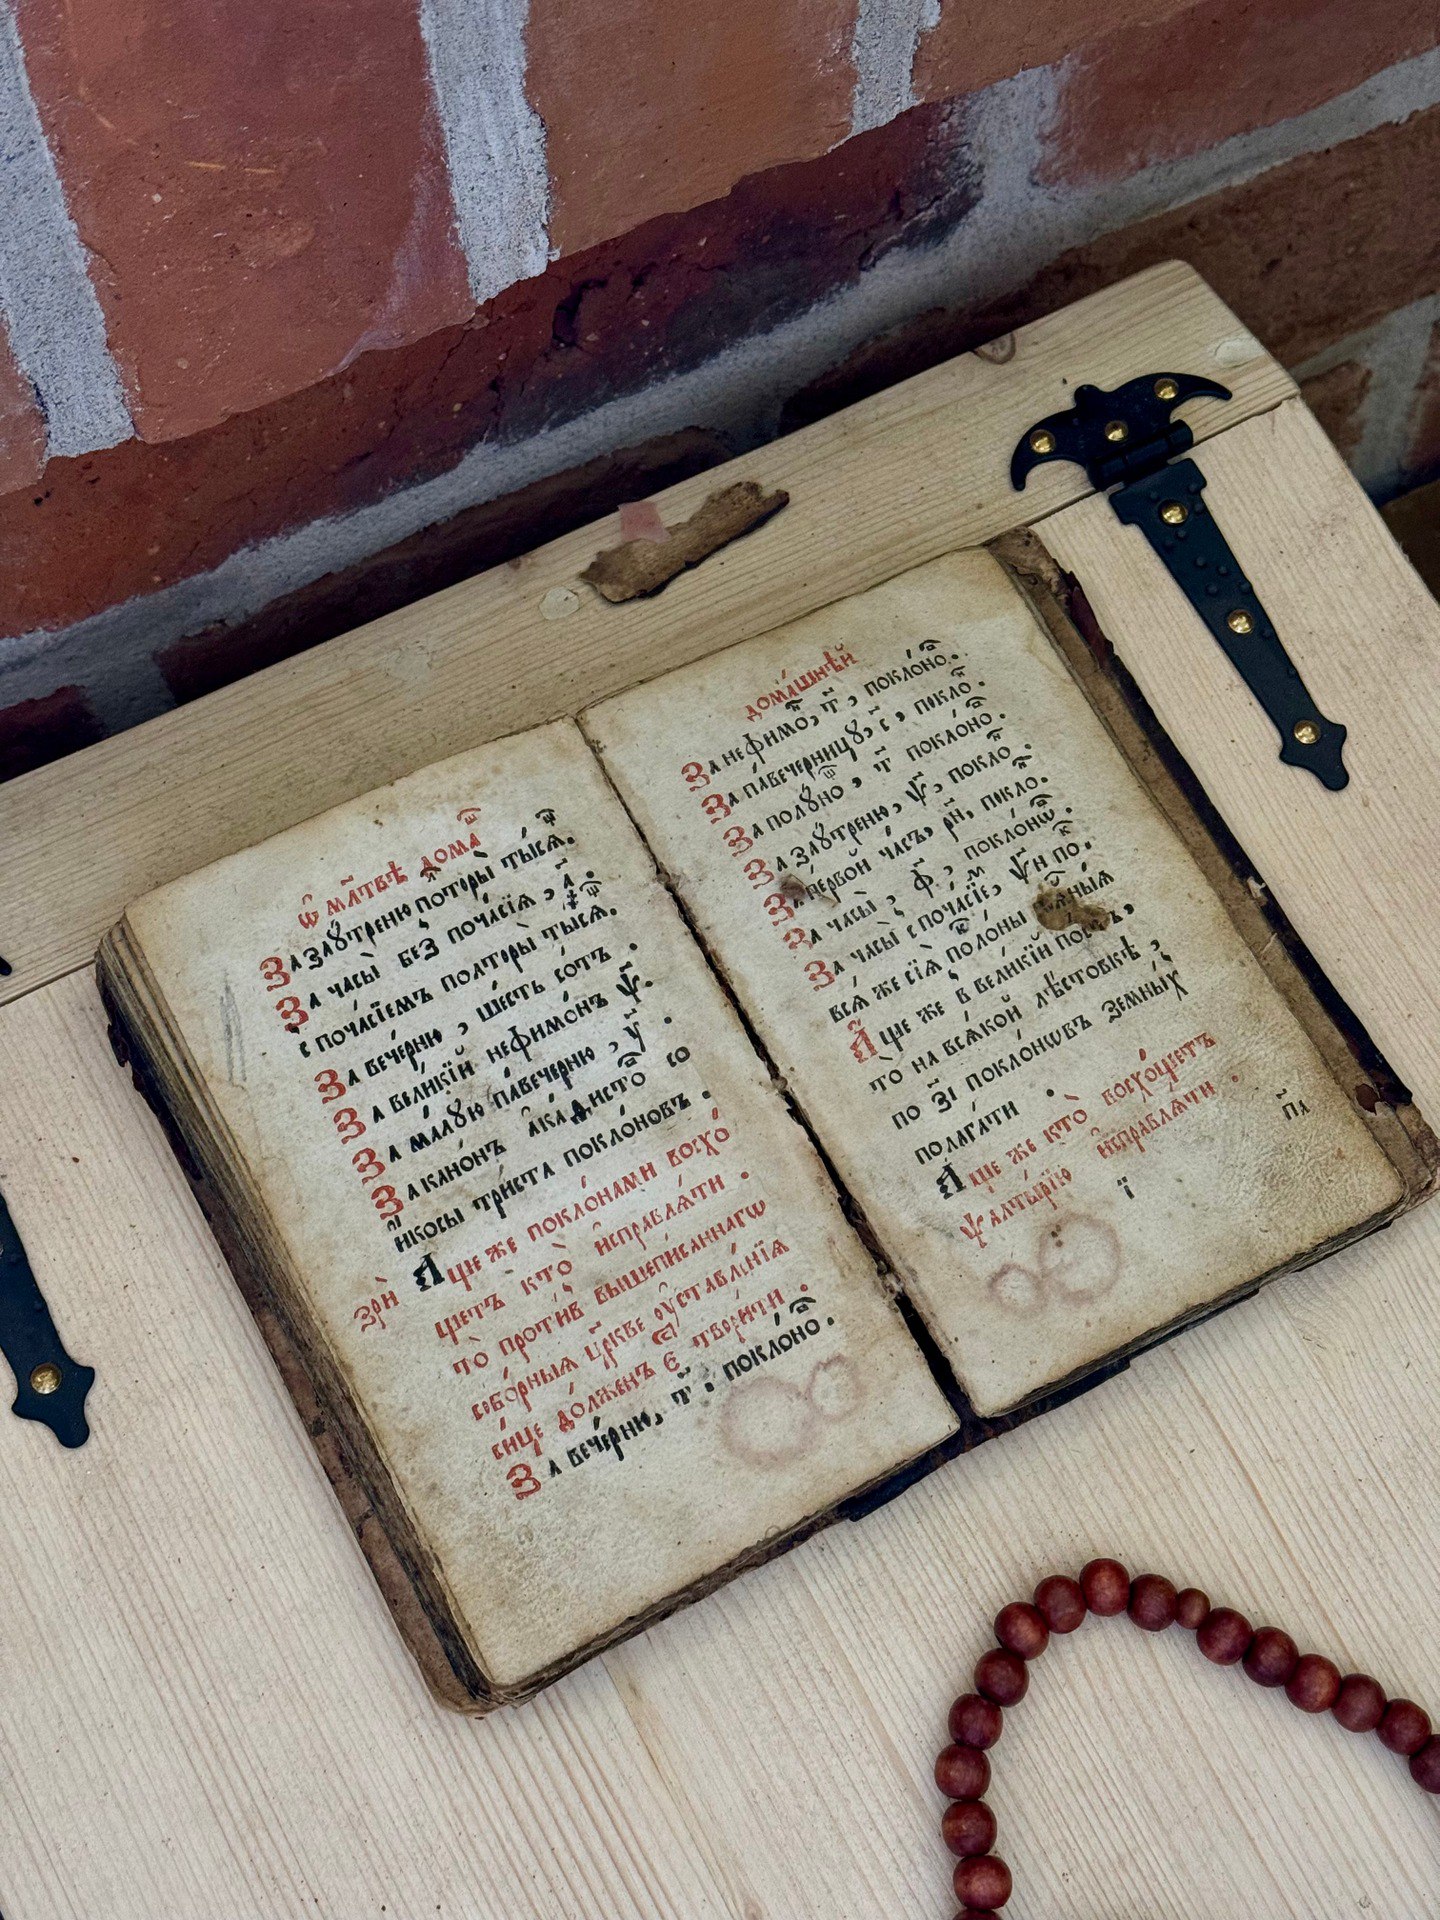 Ѡ҆ мл҃твѣ дома
За заꙋтреню полторы̀ тысѧ.
За часы̀ без почасїѧ, ҂а҃.
с почасїемъ полторы̀ тысѧ.
За вечерню, шесть сотъ.
За великїй нефимонъ ѱ҃.
За малꙋю павечерню, у҃.
За канонъ а҆каѳисто со
и҆косы триста поклоновъ.
зри̂ Аще же поклонами восхо
щетъ кто̀ и҆справлѧти.
то против вышеписаннагѡ
соборныѧ цр҃кве ѹставленїѧ
сице долженъ є҆ творити.
За вечерню, т҃. поклоно.
домашнѣй
За нефимо, т҃, поклоно.
За павечерницꙋ, с҃, покло.
За полꙋно, т҃ поклоно.
За заꙋтреню, ѱ҃, покло.
За первой часъ, рн҃, покло.
За часы̀, ф҃, поклонѡ.
За часы̀ с почасїе, ѱн҃ по.
всѧ же сїѧ полоны
Аще же в великїй
то на всѧкой лѣстовкѣ,
по з҃і поклонѡвъ земныхъ
полагати.
Аще же кто̀ восхощетъ
ѱалтырїю и҆справлѧти.
ї
п҃а